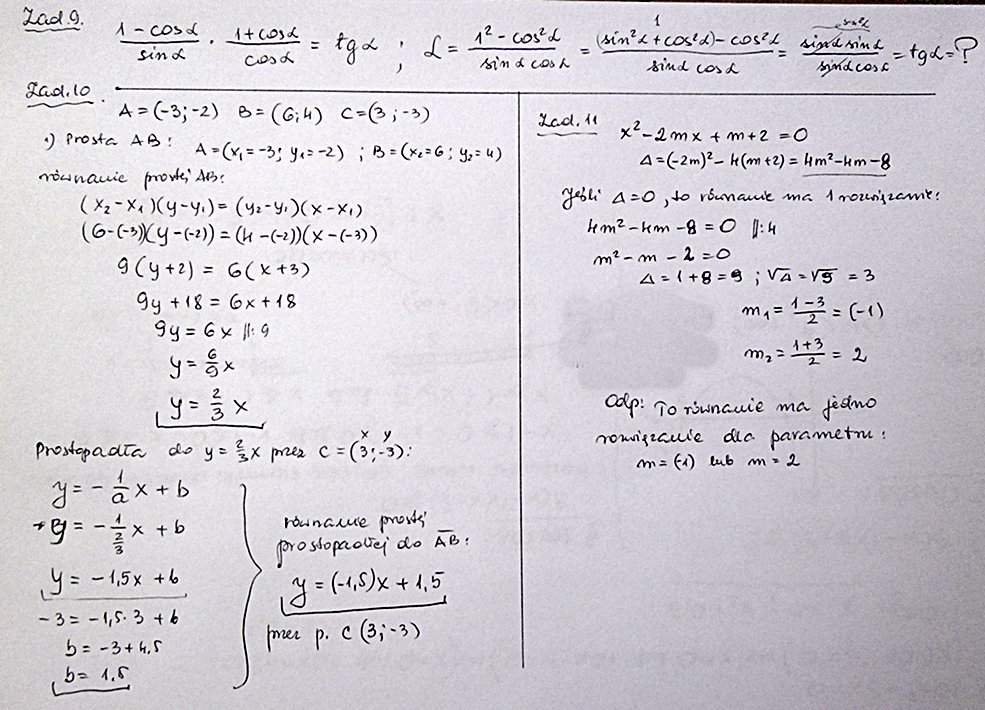 Zad.9.
1 - cosα / sinα · 1 + cosα / cosα = tgα ; L = 1² - cos²α / sinα cosα = (sin²α + cos²α) - cos²α / sinα cosα = sinα sinα / sinα cosα = tgα = P
1
sin²α
Zad.10.
A = (-3; -2) B = (6; 4) C = (3; -3)
1) Prosta AB: A = (x₁ = -3; y₁ = -2) ; B = (x₂ = 6; y₂ = 4)
równanie prostej AB:
(x₂ - x₁)(y - y₁) = (y₂ - y₁)(x - x₁)
(6 - (-3))(y - (-2)) = (4 - (-2))(x - (-3))
9(y + 2) = 6(x + 3)
9y + 18 = 6x + 18
9y = 6x //: 9
y = 6/9 x
y = 2/3 x
x y
Prostopadła do y = 2/3 x przez C = (3; -3):
y = - 1/a x + b
y = - 1/(2/3) x + b
y = -1,5x + b
-3 = -1,5 · 3 + b
b = -3 + 4,5
b = 1,5
równanie prostej
prostopadłej do AB:
y = (-1,5)x + 1,5
przez p. C (3; -3)
Zad. 11
x² - 2mx + m + 2 = 0
Δ = (-2m)² - 4(m + 2) = 4m² - 4m - 8
Jeśli Δ = 0, to równanie ma 1 rozwiązanie:
4m² - 4m - 8 = 0 //: 4
m² - m - 2 = 0
Δ = 1 + 8 = 9 ; √Δ = √9 = 3
m₁ = 1 - 3 / 2 = (-1)
m₂ = 1 + 3 / 2 = 2
Odp: To równanie ma jedno
rozwiązanie dla parametru:
m = (-1) lub m = 2